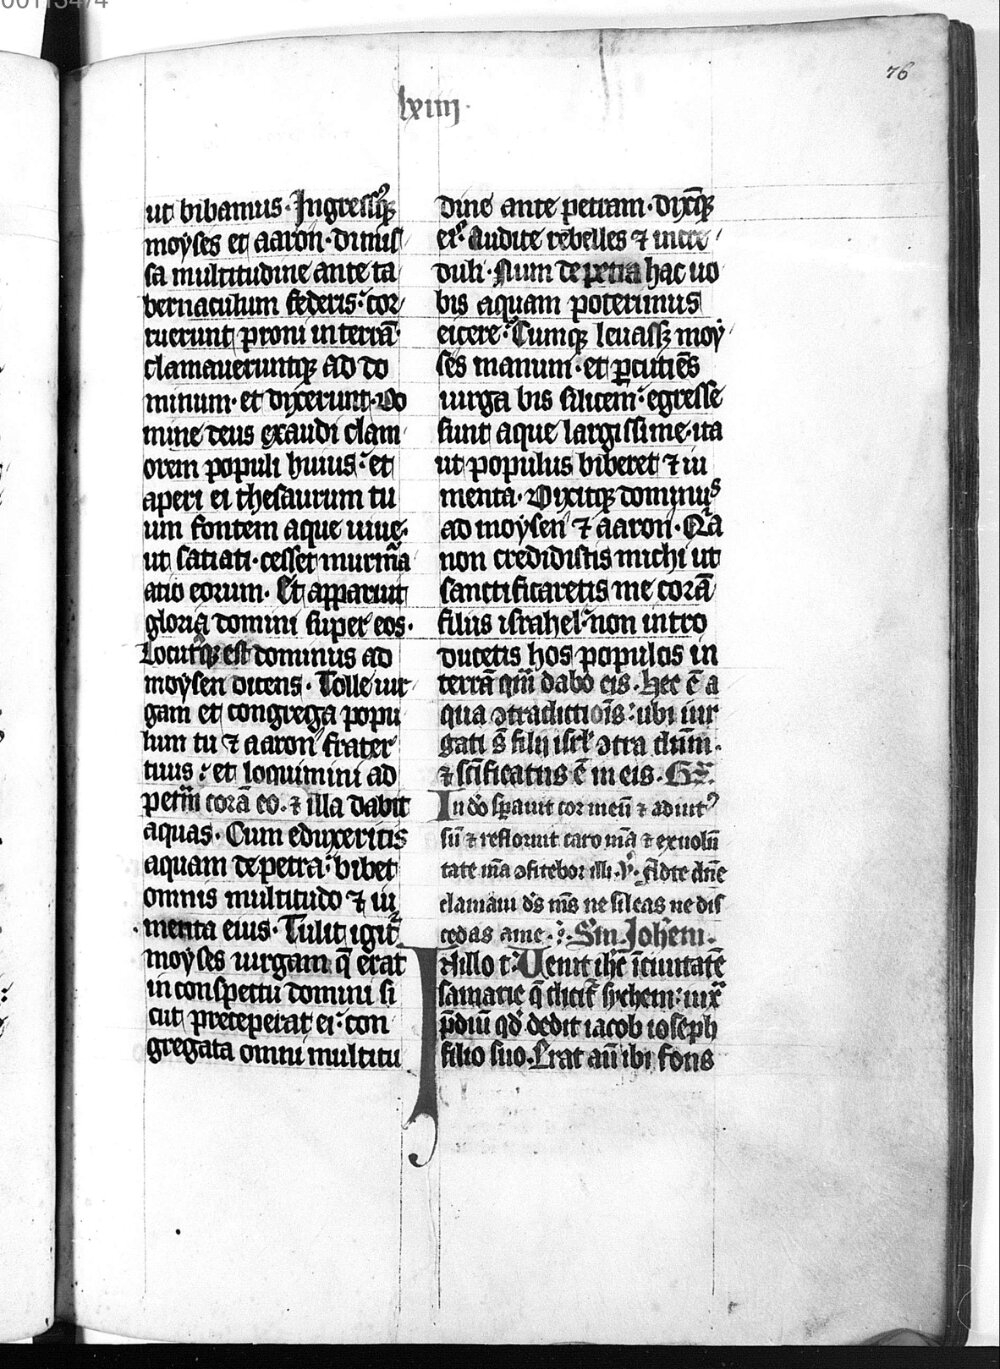 00113474
76
lxiiij.
ut bibamus. Ingressusqꝫ
moyses et aaron. dimis
sa multitudine ante ta
bernaculum federis: cor
ruerunt proni in terrā.
clamaueruntqꝫ ad do
minum. et dixerunt. Do
mine deus exaudi clam
orem populi huius: et
aperi ei thesaurum tu
um fontem aque uiue.
ut satiati. cesset murmur
atio eorum. Et apparuit
gloria domini super eos.
Locutusqꝫ est dominus ad
moysen dicens. Tolle uir
gam et congrega popu
lum tu ⁊ aaron frater
tuus: et loquimini ad
petrā corā eo. ⁊ illa dabit
aquas. Cum eduxeritis
aquam de petra: bibet
omnis multitudo ⁊ iu
menta eius. Tulit igit᷑
moyses uirgam q̄ erat
in conspectu domini si
cut preceperat ei: con
gregata omni multitu
dine ante petram. dixitqꝫ
eis. Audite rebelles ⁊ incre
duli. Num de petra hac uo
bis aquam poterimus
eicere: Cumqꝫ leuassꝫ moy
ses manum. et ꝑcutiēs
uirga bis silicem: egresse
sunt aque largissime. ita
ut populus biberet ⁊ iu
menta. Dixitqꝫ dominus
ad moysen ⁊ aaron. Qͣa
non credidistis michi ut
sanctificaretis me corā
filiis israhel: non intro
ducetis hos populos in
terrā qm̄ dabo eis. Hec ē a
qua ꝯtradictiōis: ubi iur
gati s̄ filij isrl̓ ꝯtra dūm.
⁊ scīficatus ē in eis. Gr̄.
In dō sꝑauit cor meū ⁊ adiut᷒
sū ⁊ refloruit caro mā ⁊ ex uolū
tate mā ꝯfitebor illi. V̓. Ad te dn̄e
clamaui ds̄ ms̄ ne sileas ne dis
cedas a me. Scd̄m Joħem.
In illo t̓. Venit ihc̄ ī ciuitatē
samarie q̄ dicit᷑ sychem: iuxͣ
p̄diū qd̓ dedit iacob ioseph
filio suo. Erat aū ibi fons